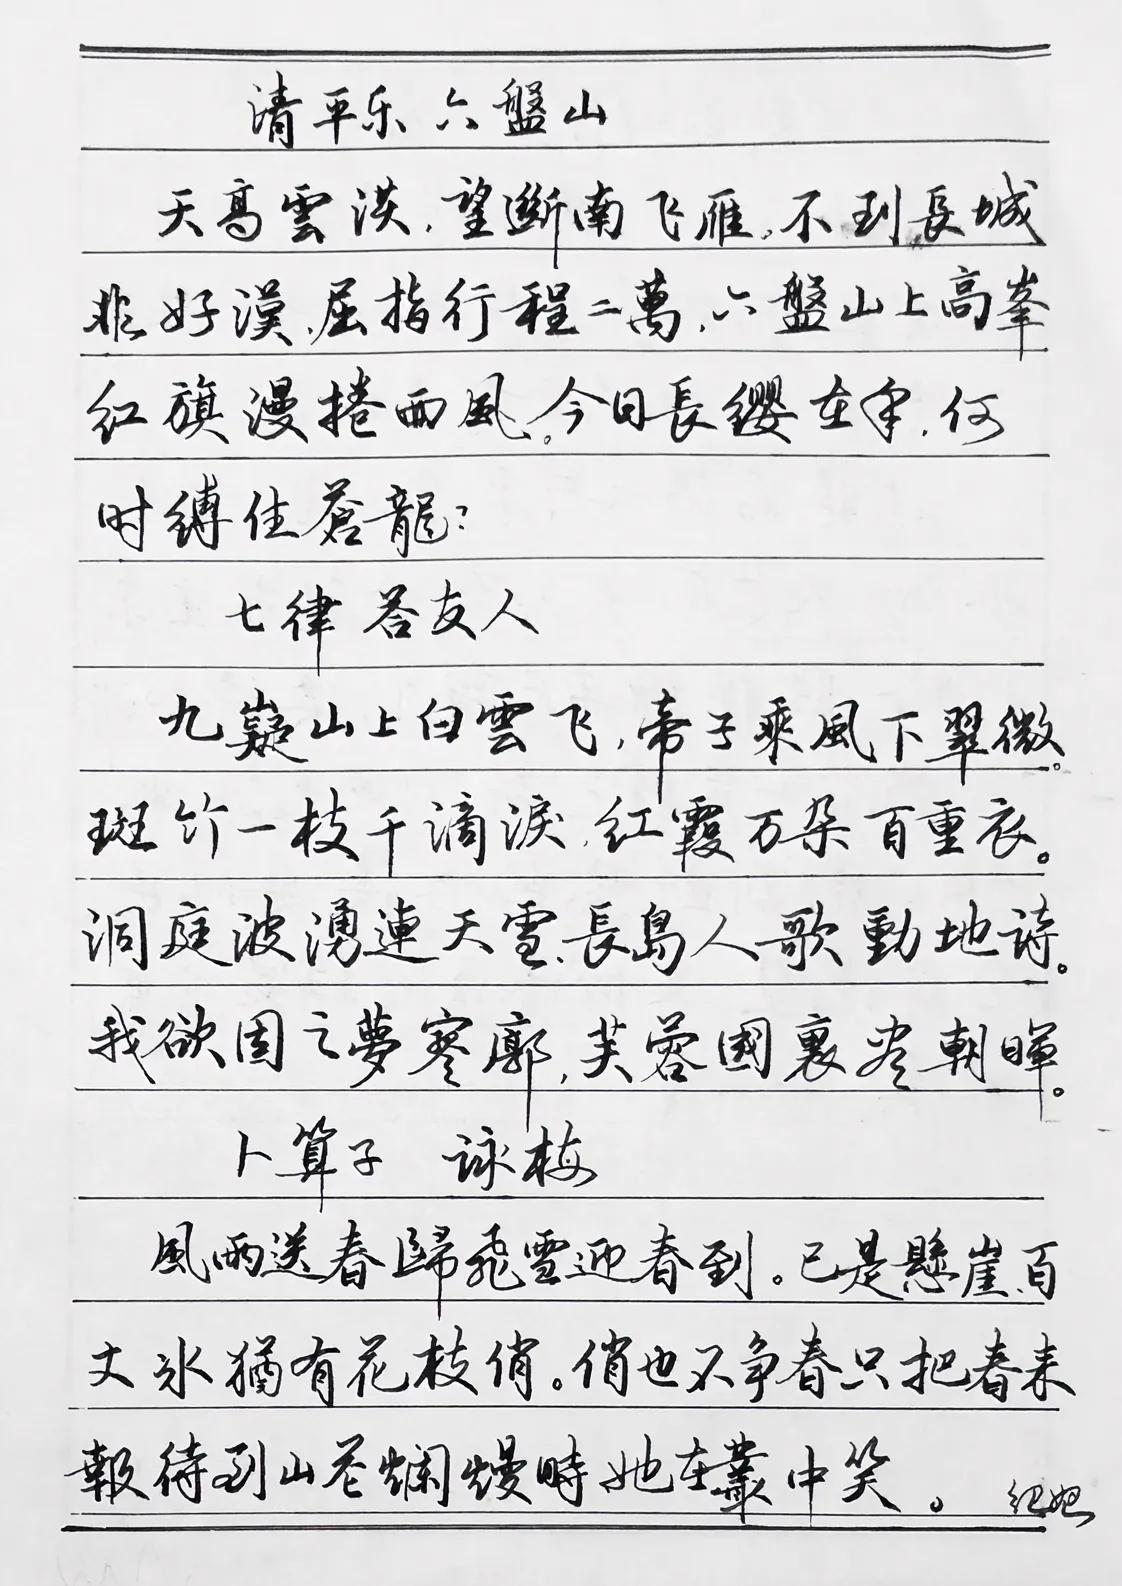 清平乐 六盤山
天高雲淡，望斷南飞雁。不到長城
非好漢，屈指行程二萬，六盤山上高峯
红旗漫捲西風。今日長纓在手，何
时縛住蒼龍？
七律 答友人
九嶷山上白雲飞，帝子乘風下翠微。
斑竹一枝千滴淚，红霞万朵百重衣。
洞庭波湧連天雪，長島人歌動地詩。
我欲因之夢寥廓，芙蓉國裏尽朝暉。
卜算子 詠梅
風雨送春歸飛雪迎春到。已是懸崖百
丈冰猶有花枝俏。俏也不争春只把春来
報待到山花爛熳時她在叢中笑。